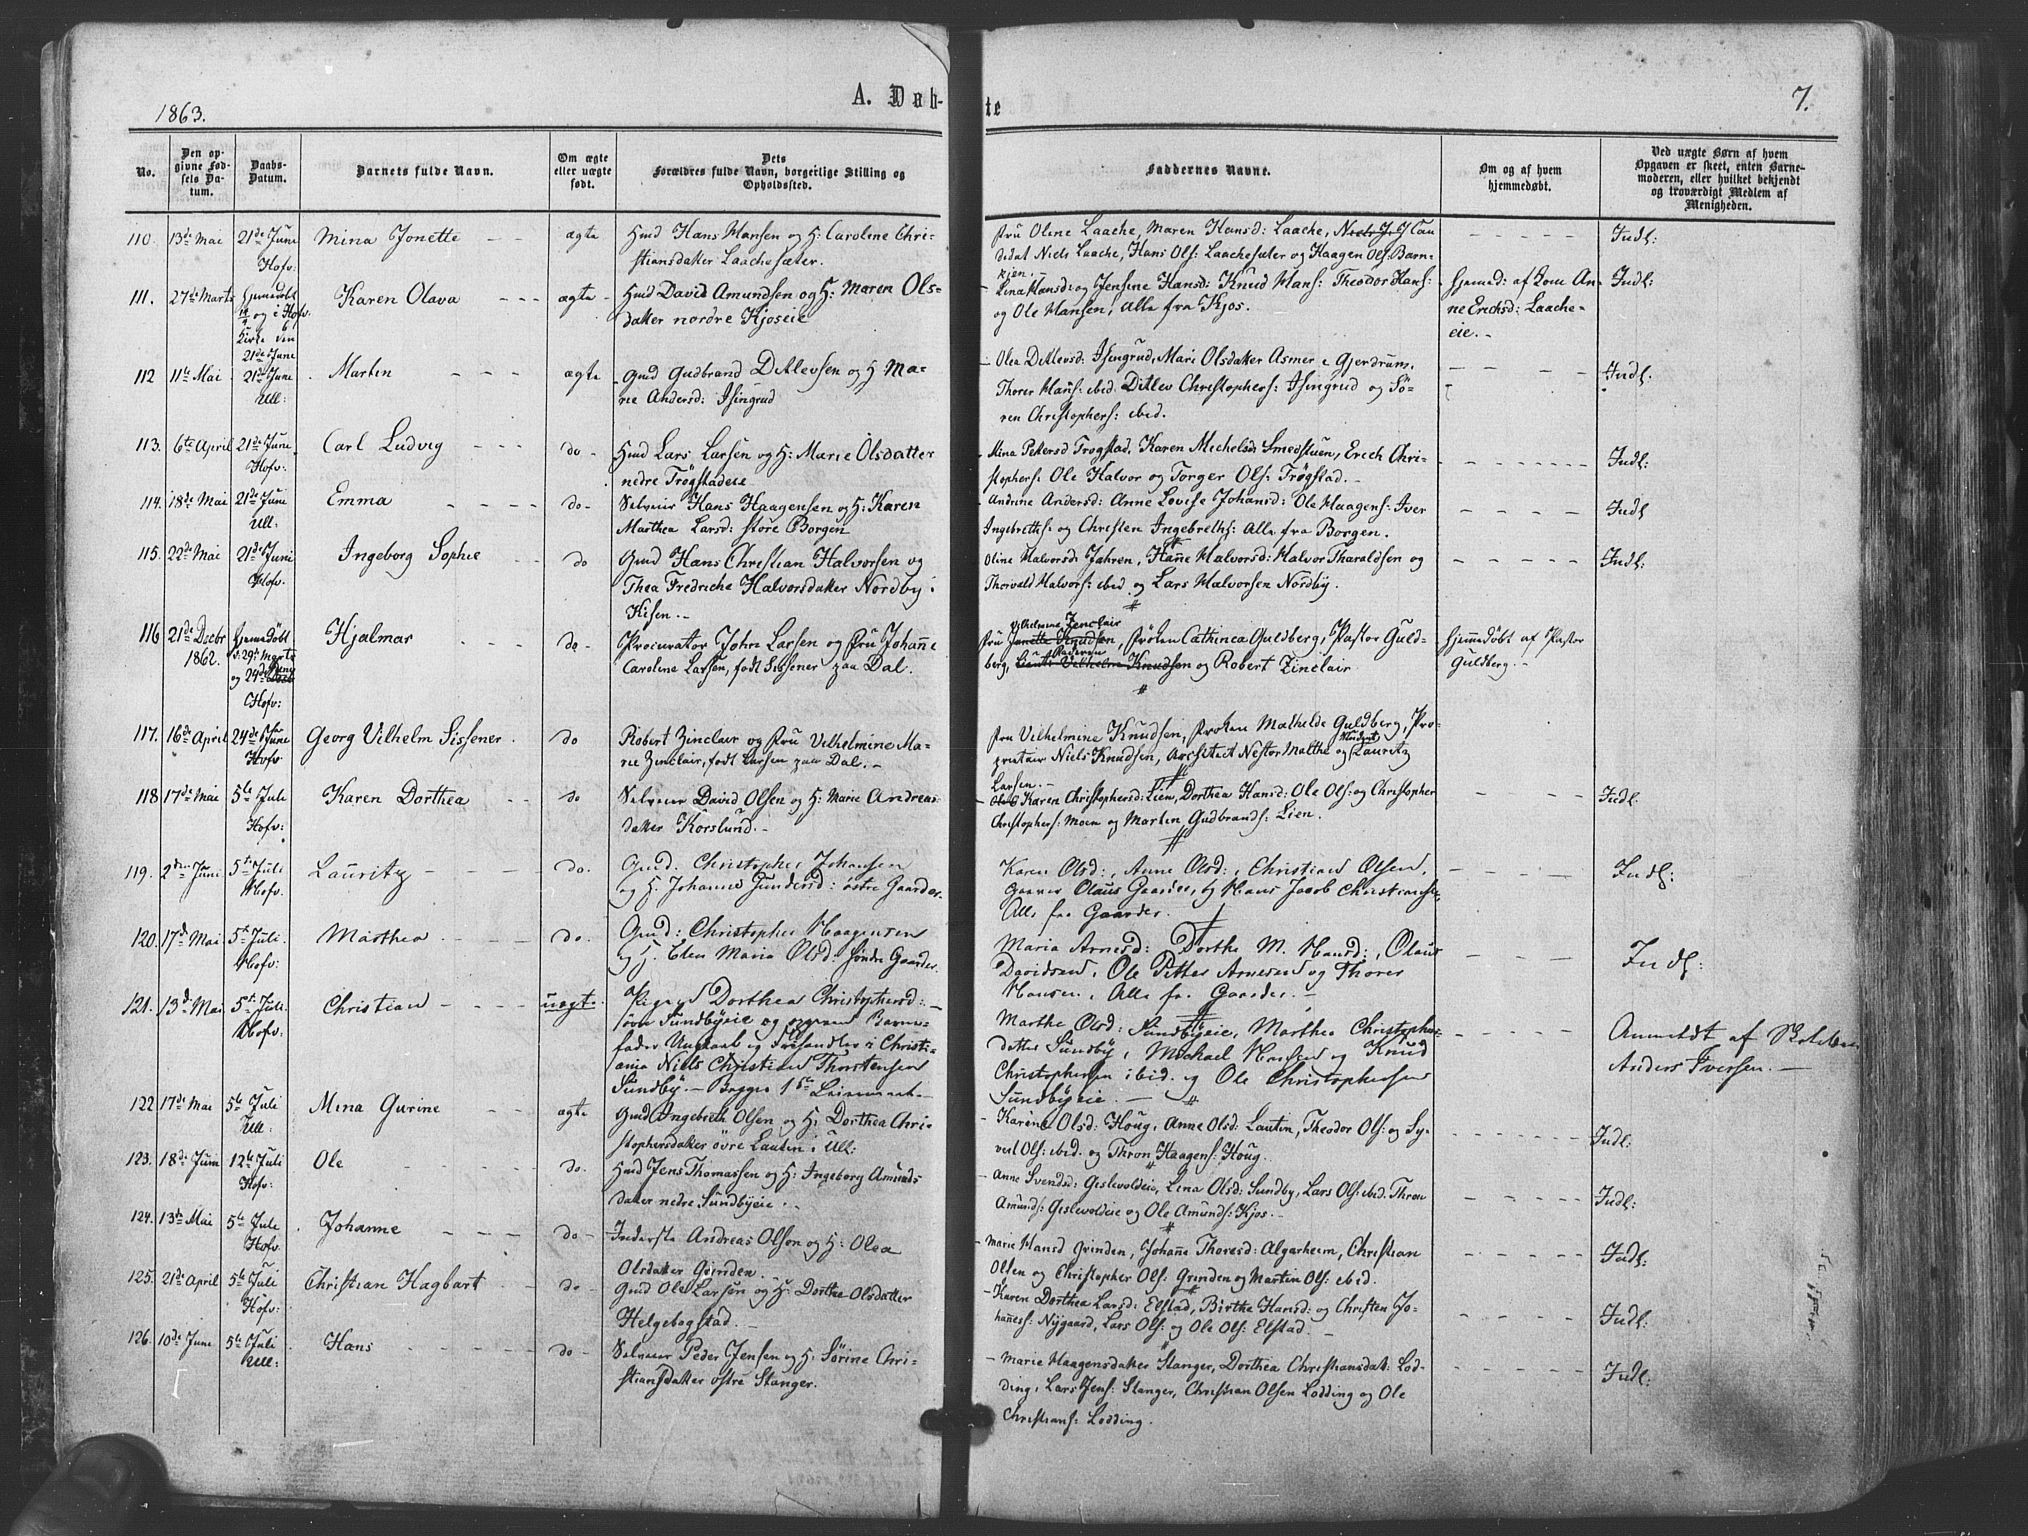 1863.
A. Døb-
te
7.
No.
Den op-
givne Fød-
sels Da-
tum.
Daabs-
Datum.
Barnets fulde Navn.
Om ægte
eller uægte
født.
Dets
Forældres fulde Navn, borgerlige Stilling og
Opholdssted.
Faddernes Navne.
Om og af hvem
hjemmedøbt.
Ved uægte Børn af hvem
Opgaven er skeet, enten Barne-
moderen, eller hvilket bekjendt
og troværdigt Medlem af
Menigheden.
110. 13de Mai 21de Juni Mina Jonette ægte Hmd Hans Hansen og H: Caroline Chri-
Hofv: stiansdatter Laachesæter.
Fru Oline Laache, Maren Hansd: Laache, Can
didat Niels Laache, Hans Ols: Laachesæter og Haagen Ols: Barn-
kjen. Indl:
111. 27de Marts Hjemmedøbt
og i Hofv.
Kirke den
21de Juni
Karen Olava ægte Hmd David Amundsen og H: Maren Ols-
datter nordre Kjoseie
Lina Hansd: og Jensine Hansd: Knud Hans: Theodor Hans:
og Ole Hansen, Alle fra Kjos.
Hjemmed: af Kone An-
ne Ericsd: Laache-
eie. Indl:
112 11te Mai 21de Juni
Ull:
Martin ægte Gmd Gudbrand Ditlevsen og H Ma-
rie Andersd: Isingrud
Olea Ditlevsd: Isingrud, Mari Olsdatter Asmer i Gjerdrum,
Thorer Hans: ibid. Ditlev Christophers: Isingrud og Sö-
ren Christophers: ibid. Indl:
113. 6te April 21de Juni
Hofv:
Carl Ludvig do Hmd Lars Larsen og H: Marie Olsdatter
nedre Trögstadeie
Mina Petersd Trogstad, Karen Michelsd Smedstuen, Erich Chri-
stophers: Ole Halvor og Torger Ols: Trøgstad. Indl:
114. 18de Mai 21de Juni
Ull:
Emma do Selveier Hans Haagensen og H: Karen
Marthea Larsd: store Borgen
Andrine Andersd: Anne Lovise Johansd: Ole Haagens: Iver
Ingebreths: og Christen Ingebreths: Alle fra Borgen. Indl
115. 22de Mai 21de Juni
Hofv.
Ingeborg Sophie do Gmd Hans Christian Halvorsen og
Thea Fredriche Halvorsdatter Nordby i
Kisen.
Oline Halvorsd: Jahren, Hanne Halvorsd: Halvor Tharaldsen og
Thorvald Halvors: ibid og Lars Halvorsen Nordby. Indl:
116 21de Decbr
1862.
Hjemmedøbt
29de Marts
og 24de Juni
Hofv:
Hjalmar do Procurator John Larsen og Fru Johanne
Caroline Larsen, født Sissener paa Dal.
Vilhelmine Zinclair
Fru Janette Knudsen, Frøken Cathinca Guldberg, Pastor Guld-
berg, Vilhelm Knudsen og Robert Zinclair
Hjemmedøbt af Pastor
Guldberg.
117. 16de April 24de Juni
Hofv
Georg Vilhelm Sissener do Robert Zinclair og Fru Vilhelmine Ma-
rie Zinclair, født Larsen paa Dal.
Fru Vilhelmine Knudsen, Frøken Mathilde Guldberg, Pro-
prietair Niels Knudsen, Architect Nestor Malthe og Student Lauritz
Larsen.
118 17de Mai 5te Juli
Hofv:
Karen Dorthea do Selveier David Olsen og H: Marie Andreas
datter Korslund.
Karen Christophersd: Lien, Dorthea Hansd: Ole Ols: og Christopher
Christophers: Moen og Martin Gudbrands: Lien. Indl:
119. 2den Juni 5te Juli
Hofv.
Lauritz do. Gmd: Christopher Johansen
og H. Johanne Gundersd: østre Gaarder.
Karen Olsd:, Anne Olsd:, Christian Olsen,
Olaus Gaarder, og Hans Jacob Christians:
Alle fra Gaarder. Indl:
120. 17de Mai 5te Juli.
Hofv.
Marthea do. Gmd: Christopher Haagensen
og H. Elen Maria Olsd: Søndre Gaarder.
Maria Arnesd: Dorthe M. Hansd:, Olaus
Davidsen, Ole Petter Arnesen og Thorer
Hansen. Alle fra Gaarder. Indl:
121. 13de Mai 5te Juli.
Hofv:
Christian uægte. Pigen Dorthea Christophersd:
øvre Sundbyeie og opgiven Barne-
fader Ungkarl og Frihandler i Christi-
ania Niels Christian Thorstensen
Sundby. Begges 1ste Leiermaal.
Marthe Olsd: Sundbyeie, Marthea Christophers
datter Sundby, Michael Hansen og Knud
Christophersen ibid. og Ole Christophersen
Sundbyeie.
Anmeldt af
Anders Iversen.
122 17de Mai 5te Juli
Ull:
Mina Gurine ægte Gmd Ingebreth Olsen og H. Dorthea Chri-
stophersdatter øvre Lautin i Ull:
Karine Olsd: Houg, Anne Olsd: Lautin, Theodor Ols: og Sy-
vert Ols: ibid. og Thron Haagens: Houg. Indl:
123. 18de Juni 12te Juli
Hofv:
Ole do. Hmd Jens Thomassen og H: Ingeborg Amunds
datter nedre Sundbyeie.
Anne Svendsd: Gislevoldeie, Lina Olsd: Sundby, Lars Ols: ibid. Thron
Amunds: Gislevoldeie og Ole Amunds: Kjos. Indl:
124. 13de Mai 5te Juli
Hofv.
Johanne do Inderste Andreas Olsen og H: Olea
Olsdatter Grinden.
Marie Hansd Grinden, Johanne Thoresd: Algarheim, Christian
Olsen og Christopher Ols: Grinden og Martin Ols: ibid. Indl:
125. 21de April 5te Juli
Hofv:
Christian Hagbart do Gmd Ole Larsen og H: Dorthea Olsdatter
Helgebogstad.
Karen Dorthea Larsd: Elstad, Birthe Hansd: og Christen Jo-
hannes: Nygaard, Lars Ols: og Ole Ols: Elstad. Indl:
126. 10de Juni 5te Juli
Ull:
Hans do Selveier Peder Jensen og H: Sørine Chri-
stiansdatter østre Stanger.
Marie Haagensdatter Stanger, Dorthea Christiansdat: Lod-
ding, Lars Jens: Stanger, Christian Olsen Lodding og Ole
Christians: Lodding. Indl: